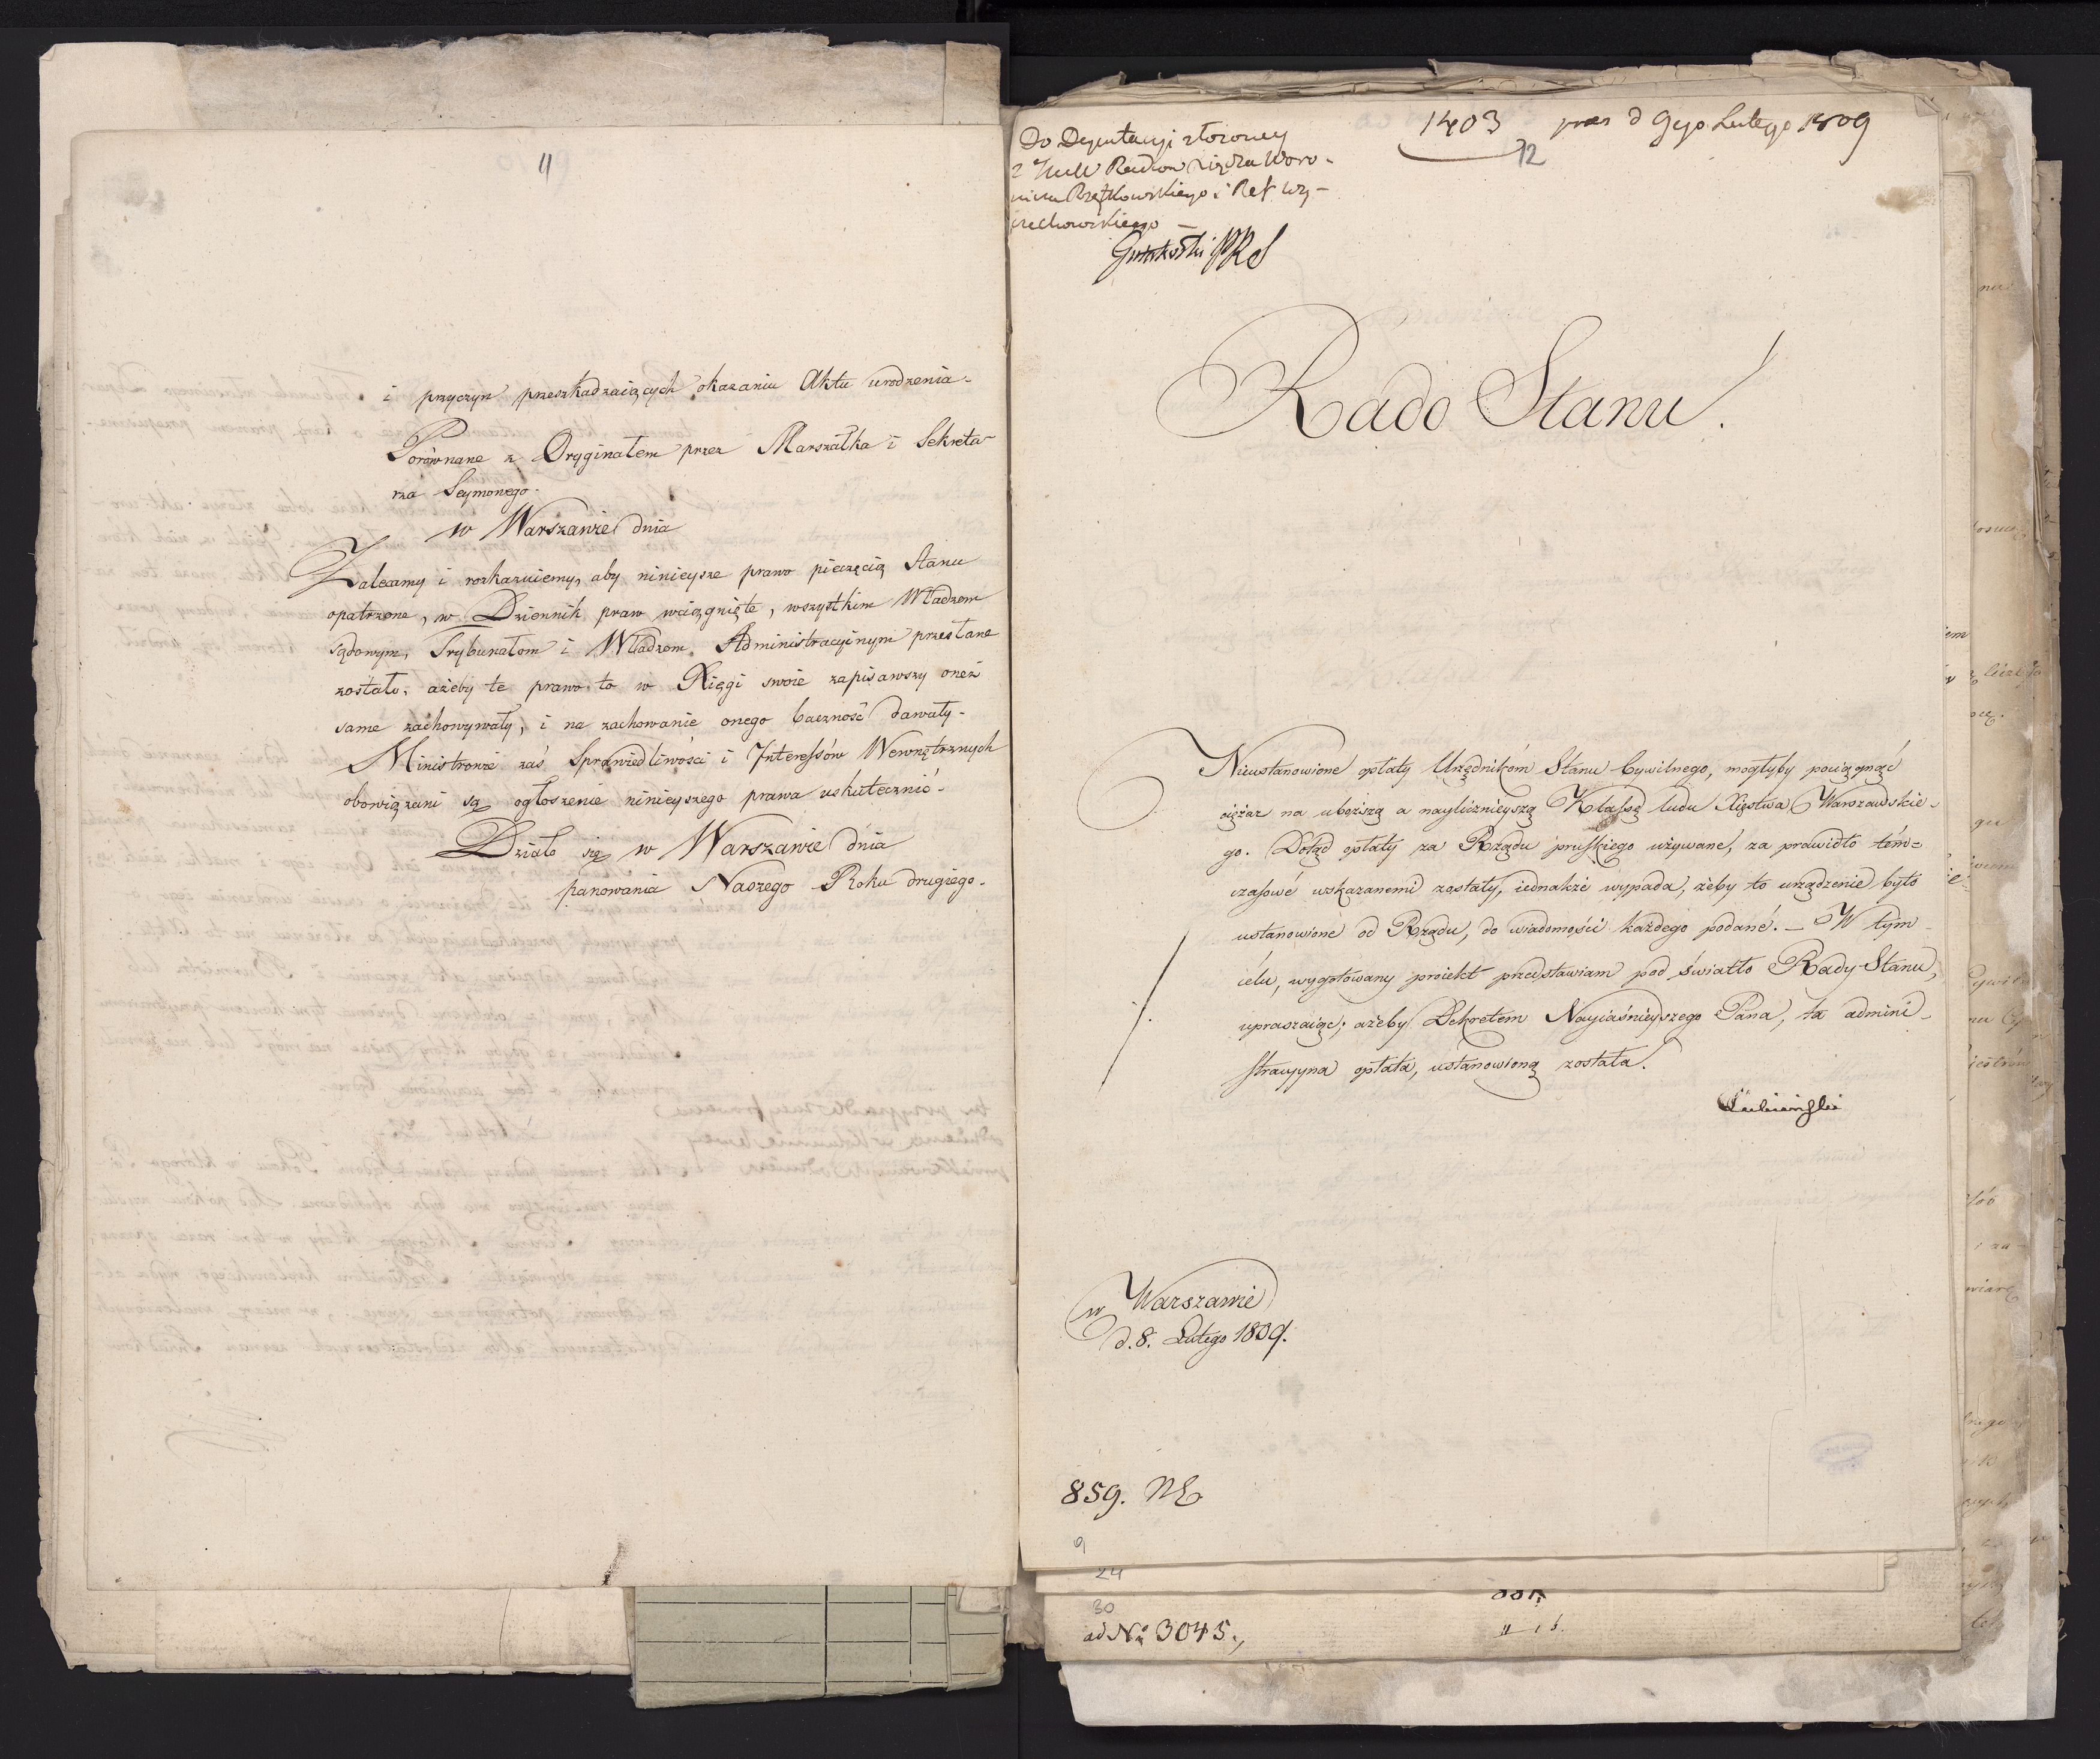 11
i przyczyn przeszkadzaiących okazaniu Aktu urodzenia.
Porównane z Oryginałem przez Marszałka i Sekreta-
rza Seymowego.
w Warszawie dnia
Zalecamy i rozkazuiemy, aby ninieysze prawo pieczęcią Stanu
opatrzone, w Dziennik praw wciągnięte, wszystkim Władzom
sądowym, Trybunałom i Władzom Administracyinym przesłane
zostało, ażeby te prawo to w Xięgi swoie zapisawszy oneż
same zachowywały, i na zachowanie onego baczność dawały.
Ministrowie zaś Sprawiedliwości i Interessów Wewnętrznych
obowiązani są ogłoszenie ninieyszego prawa uskutecznić.
Działo się w Warszawie dnia
panowania Naszego Roku drugiego.
1403 pres d 9go Lutego 1809
12
Do Deputacyi złożoney
z Radców Xiędza Woro-
nicza i Ref. Woy-
ciechowskiego
Rado Stanu!
Nieustanowione opłaty Urzędnikóm Stanu Cywilnego, mogłyby pociągnąć
ciężar na uboższą a naylicznieyszą Klassę ludu Xięstwa Warszawskie-
go. Dotąd opłaty za Rządu pruskiego używane, za prawidło tém-
czasowé wskazanemi zostały, iednakże wypada, żeby to urządzenie było
ustanowioné od Rządu, do wiadomości każdego podané. – W tym
celu, wygotowany proiekt przedstawiam pod światło Rady Stanu,
upraszaiąc; ażeby Dekretem Nayiaśnieyszego Pana, ta admini-
stracyyna opłata, ustanowioną została.
Łubieński
w Warszawie
d. 8. Lutego 1809.
859.
9
24
30
ad No 3045.